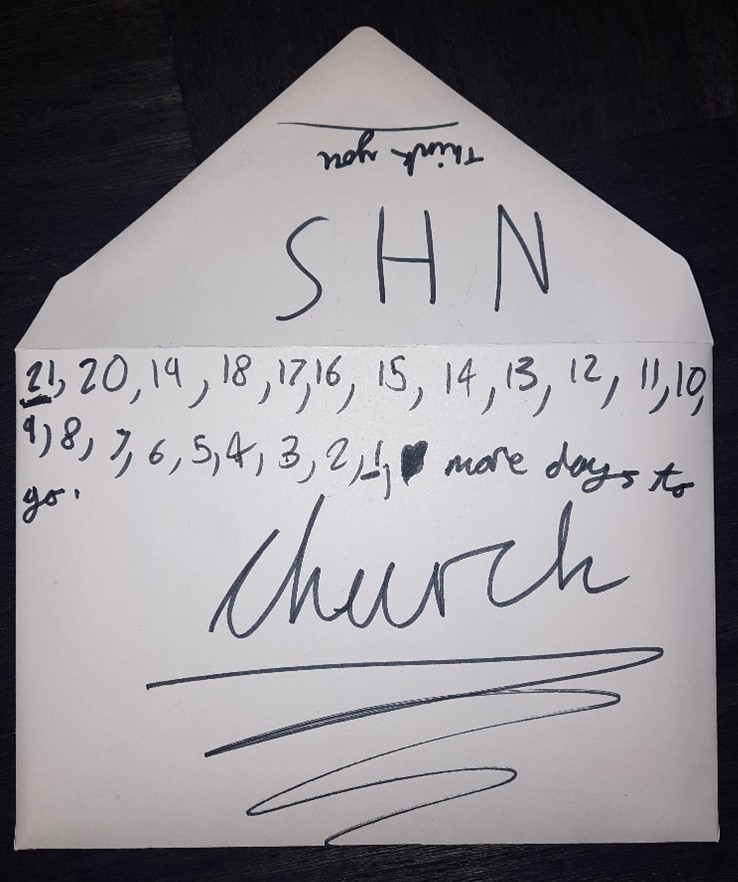 Think you
S H N
21, 20, 19, 18, 17, 16, 15, 14, 13, 12, 11, 10,
9, 8, 7, 6, 5, 4, 3, 2, 1, more days to
go.
church